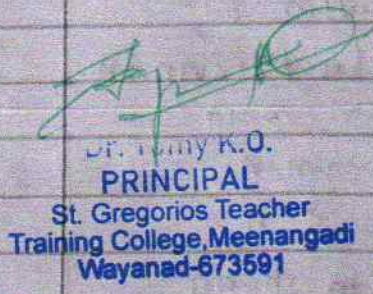 Dr. Tomy K.O.
PRINCIPAL
St. Gregorios Teacher
Training College,Meenangadi
Wayanad-673591